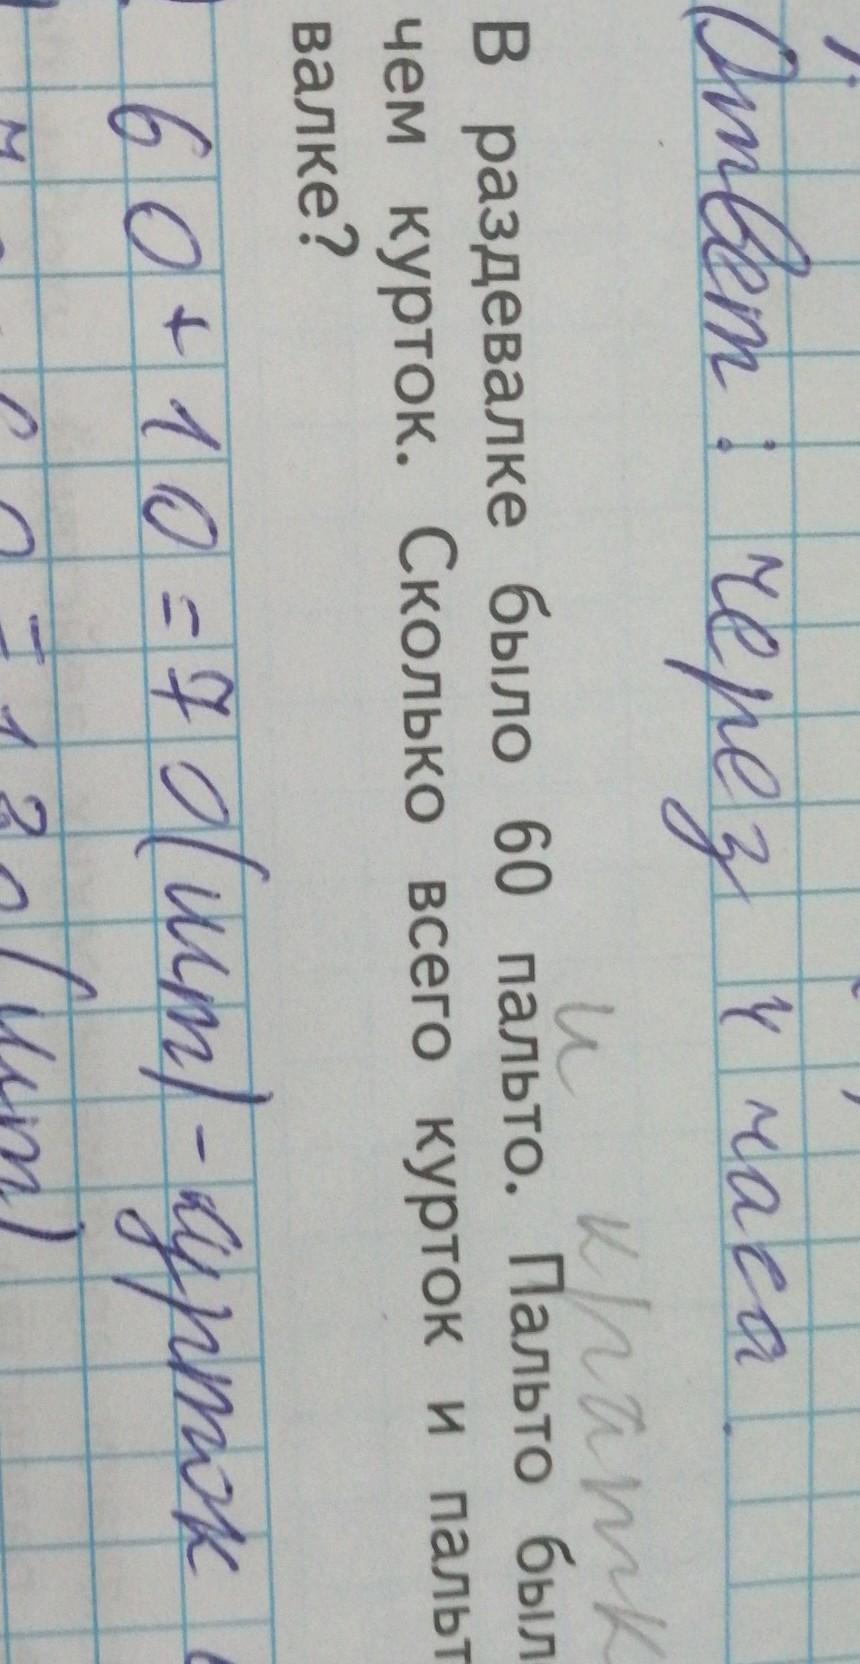 Ответ: через 4 часа.
и кратк
В раздевалке было 60 пальто. Пальто был
чем курток. Сколько всего курток и пальт
валке?
60+10=70(шт)-курток
60=130(шт)